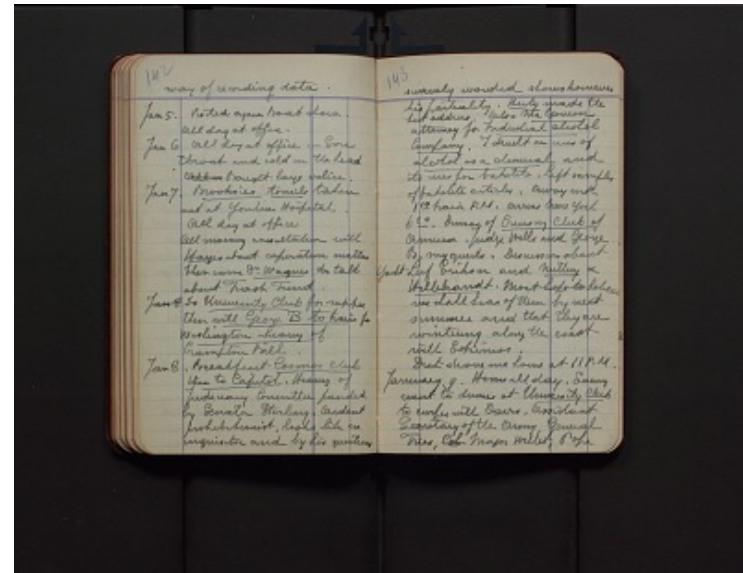 142
way of recording data.
Jan 5. Rested again Breast down.
All day at office.
Jan 6 All day at office - Sore
throat and cold in the head
Bought large valise.
Jan 7. Brooksie's tonsils taken
out at Yonkers Hospital.
All day at office
All morning consultation with
Hayes about corporation matters
then came Dr Wagner to talk
about Trash Trend.
Jan 8 To University Club for supper
then with George B to train for
Washington hearing of
Crampton Bill.
Jan 8. Breakfast Cosmos Club
then to Capitol. Hearing of
Judiciary Committee presided
by Senator Sterling. Ardent
prohibitionist, looks like an
inquisitor and by his questions
143
suavely worded shows however
his partiality. Henty made the
best address,
attorney for Industrial alcohol
Company. I dwelt on uses of
alcohol as a chemical and
its use for bakelite. Left samples
of bakelite articles. Away on
1 o'clock train P.M. arrive New York
6:10. Dinner of Omicron Club of
America. Judge Wells and George
B. my guests. Discussion about
Yacht Leif Erikson and Nutting &
Hildebrandt. Most
we shall hear of them by next
summer and that they are
wintering along the coast
with Eskimos.
Drat drove me home at 11 P.M.
January 9. Home all day. Evening
went to dinner at University Club
to confer with Davis, Assistant
Secretary of the Army, General
Fries, Col. Major